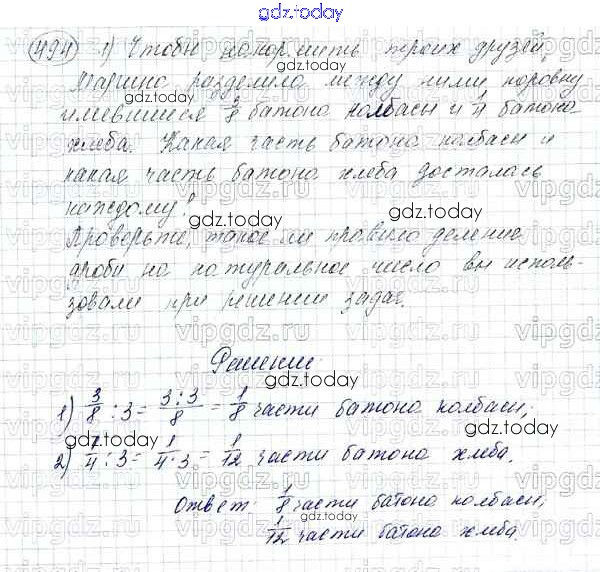 gdz.today
494 1) Чтобы накормить троих друзей,
Марина разделила между ними поровну
имевшиеся 3/8 батона колбасы и 1/4 батона
хлеба. Какая часть батона колбасы и
какая часть батона хлеба досталась
каждому?
Проверьте, такое ли правило деления
дроби на натуральное число вы исполь-
зовали при решении задач.
Решение
1) 3/8 : 3 = 3:3/8 = 1/8 части батона колбасы;
2) 1/4 : 3 = 1/4·3 = 1/12 части батона хлеба.
Ответ: 1/8 части батона колбасы;
1/12 части батона хлеба.
gdz.today